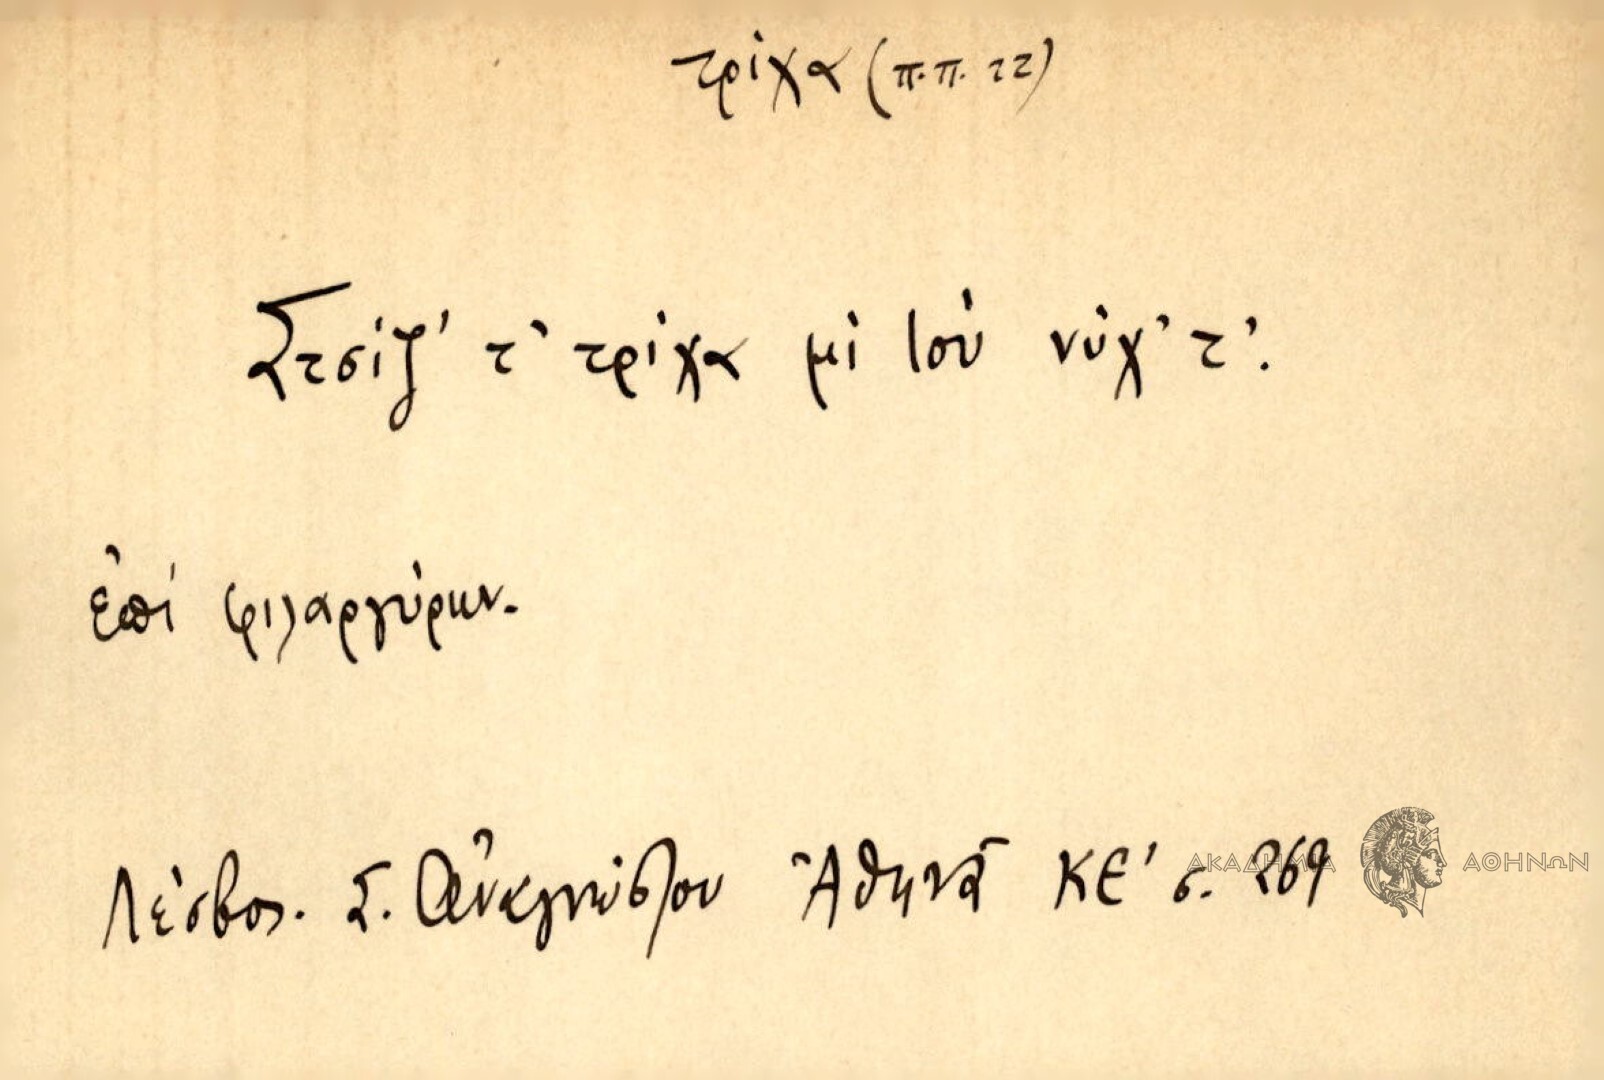 τρίχα (π.π. ττ)
Στσίζ' τ' τρίχα μὶ τοὺ νύχ' τ'.
ἐπὶ φιλαργύρων.
Λέσβος. Σ. Ἀναγνώστου Ἀθηνᾶ ΚΕ' σ. 269
ΑΚΑΔΗΜΙΑ ΑΘΗΝΩΝ